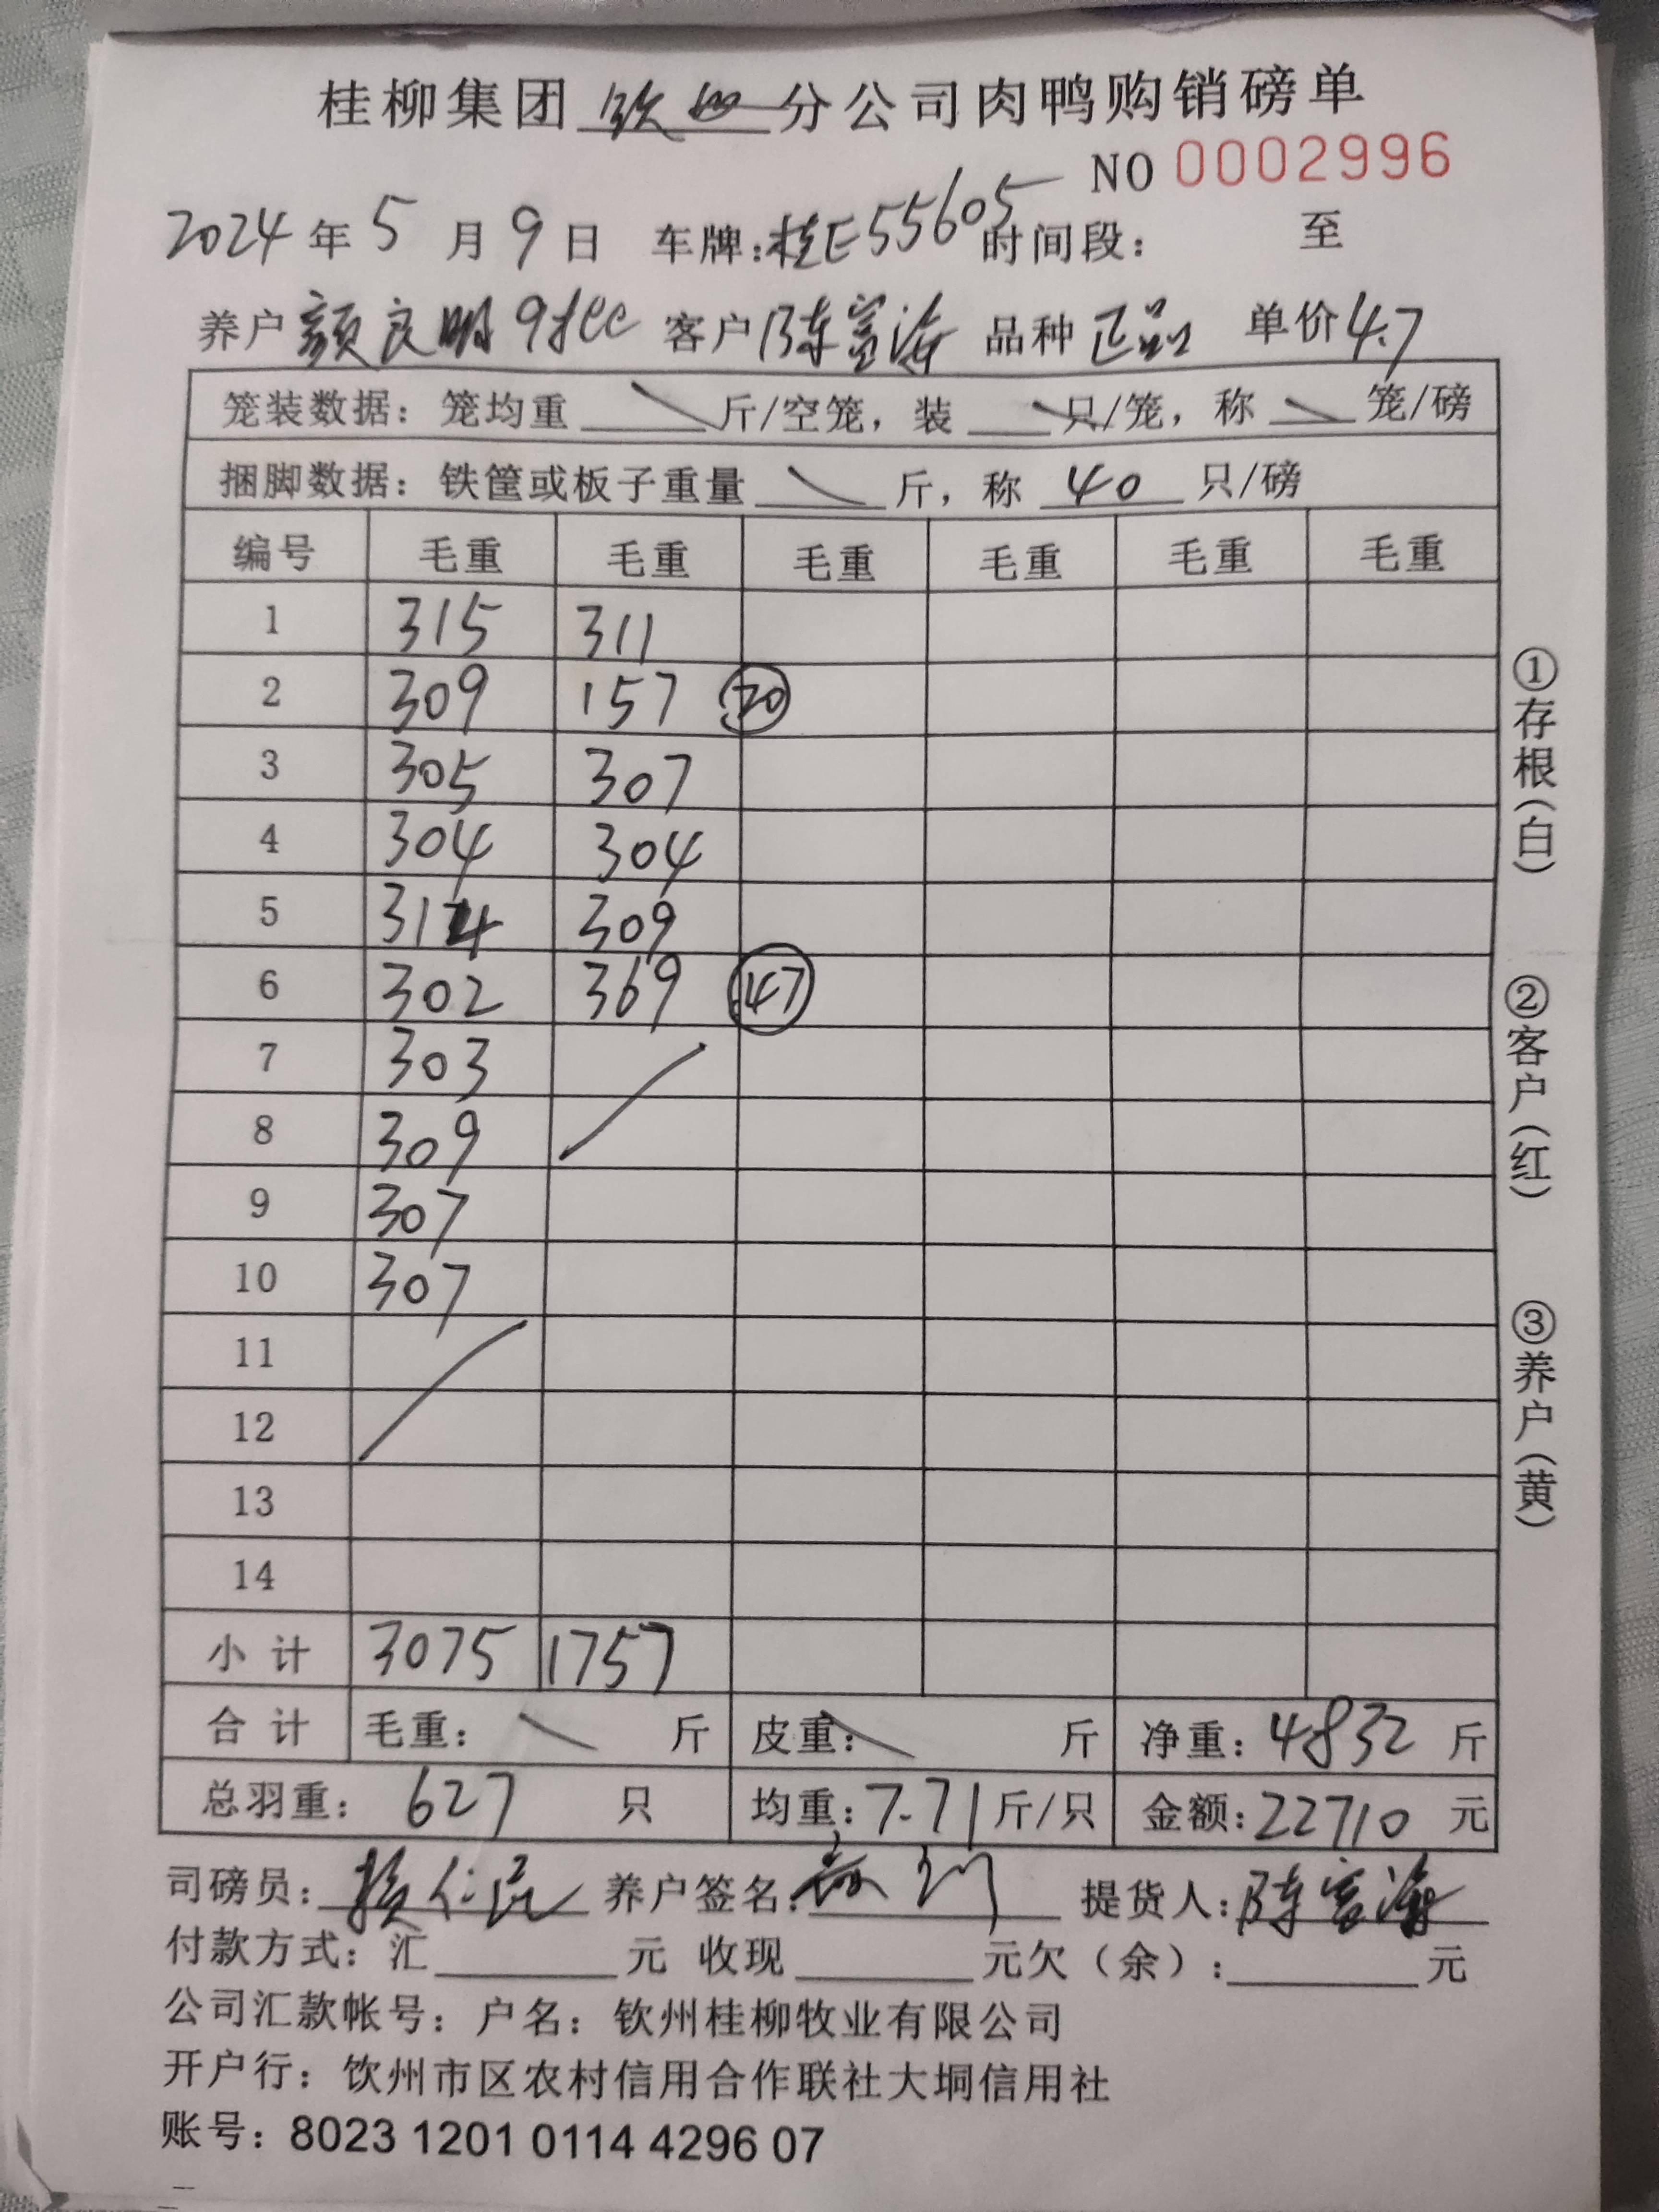 桂柳集团 钦四 分公司肉鸭购销磅单
NO 0002996
2024年5月9日 车牌:桂E55605 时间段: 至
养户 颜良明 客户 陈富海 品种 正品 单价 4.7
笼装数据: 笼均重 斤/空笼, 装 只/笼, 称 笼/磅
捆脚数据: 铁筐或板子重量 斤, 称 40 只/磅
编号 毛重 毛重 毛重 毛重 毛重 毛重
1 315 311
2 309 157 20
3 305 307
4 304 304
5 314 309
6 302 369 47
7 303
8 309
9 307
10 307
11
12
13
14
小计 3075 1757
合计 毛重: 斤 皮重: 斤 净重: 4832 斤
总羽重: 627 只 均重: 7.71 斤/只 金额: 22710 元
司磅员: 养户签名: 提货人: 陈富海
付款方式: 汇 元 收现 元欠(余): 元
公司汇款帐号: 户名: 钦州桂柳牧业有限公司
开户行: 钦州市区农村信用合作联社大垌信用社
账号: 8023 1201 0114 4296 07
①存根(白)
②客户(红)
③养户(黄)